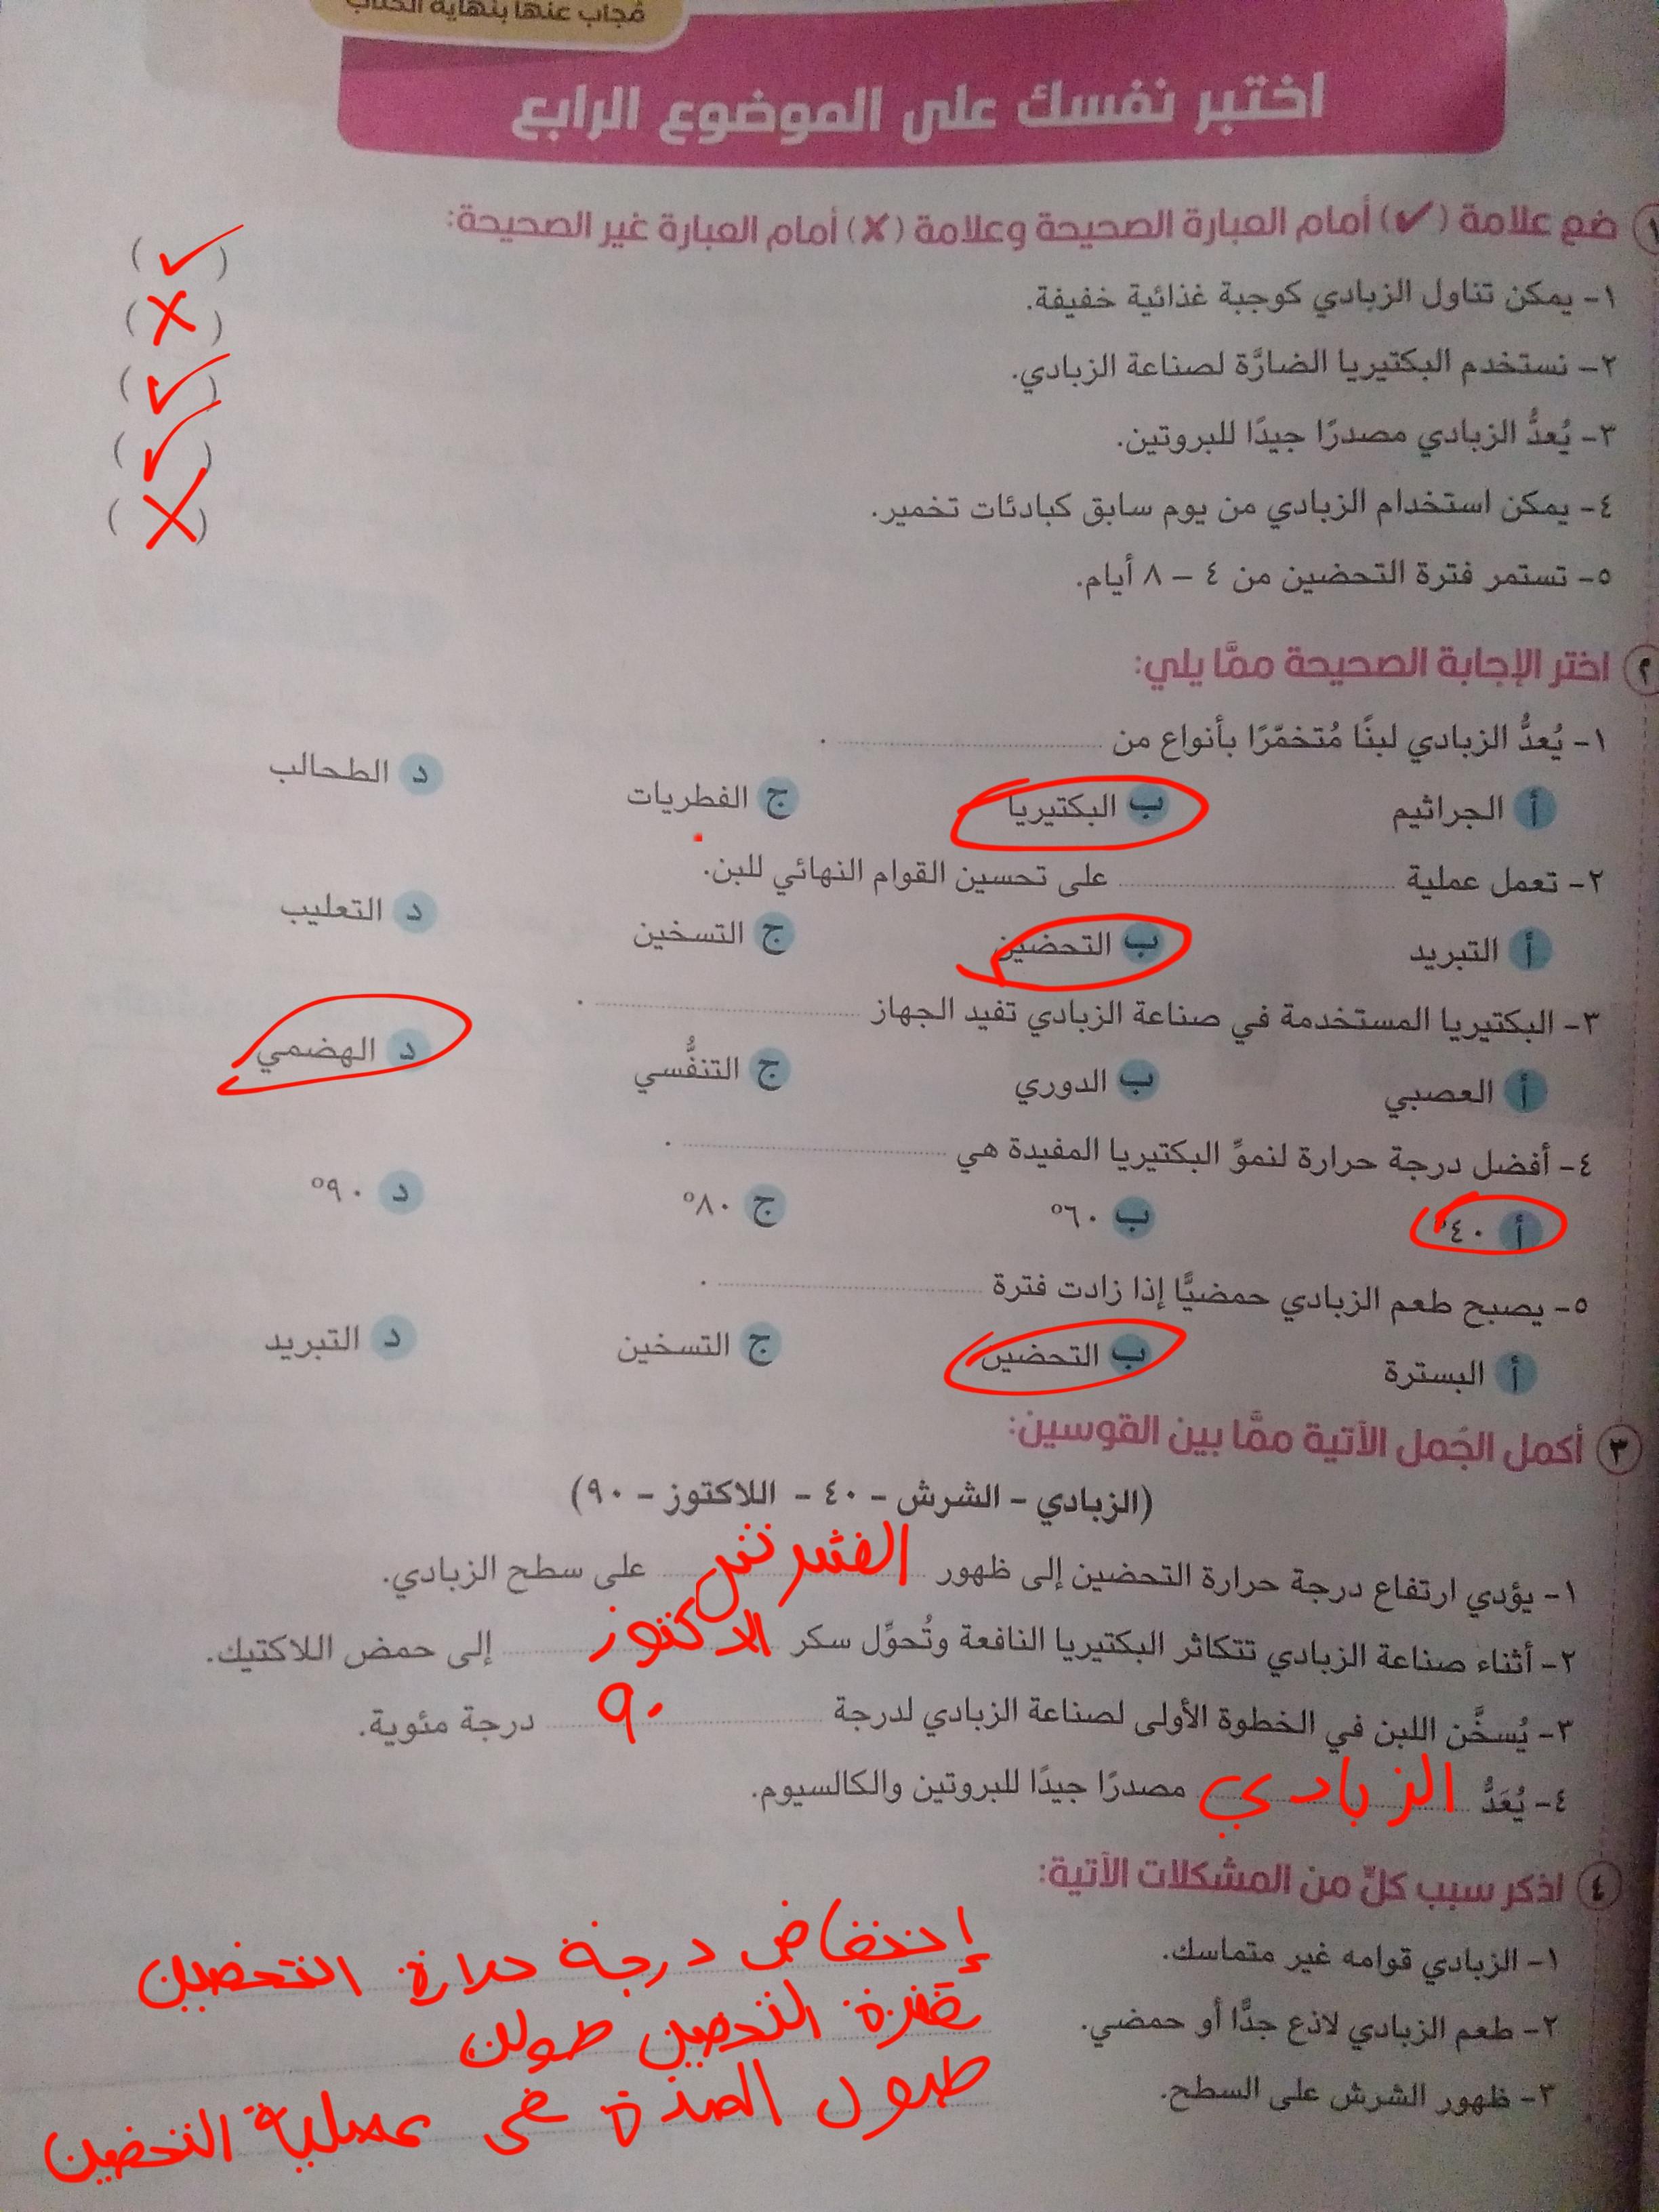 مُجاب عنها بنهاية الكتاب
اختبر نفسك على الموضوع الرابع
١ ضع علامة (✔) أمام العبارة الصحيحة وعلامة (✘) أمام العبارة غير الصحيحة:
١- يمكن تناول الزبادي كوجبة غذائية خفيفة. (✓)
٢- نستخدم البكتيريا الضارَّة لصناعة الزبادي. (X)
٣- يُعدُّ الزبادي مصدرًا جيدًا للبروتين. (✓)
٤- يمكن استخدام الزبادي من يوم سابق كبادئات تخمير. (✓)
٥- تستمر فترة التحضين من ٤ – ٨ أيام. (X)
٢ اختر الإجابة الصحيحة ممَّا يلي:
١- يُعدُّ الزبادي لبنًا مُتخمّرًا بأنواع من ............ .
أ الجراثيم ب البكتيريا ج الفطريات د الطحالب
٢- تعمل عملية ............ على تحسين القوام النهائي للبن.
أ التبريد ب التحضين ج التسخين د التعليب
٣- البكتيريا المستخدمة في صناعة الزبادي تفيد الجهاز ............ .
أ العصبي ب الدوري ج التنفُّسي د الهضمي
٤- أفضل درجة حرارة لنموِّ البكتيريا المفيدة هي ............ .
أ ٤٠° ب ٦٠° ج ٨٠° د ٩٠°
٥- يصبح طعم الزبادي حمضيًّا إذا زادت فترة ............ .
أ البسترة ب التحضين ج التسخين د التبريد
٣ أكمل الجُمل الآتية ممَّا بين القوسين:
(الزبادي – الشرش – ٤٠ – اللاكتوز – ٩٠)
١- يؤدي ارتفاع درجة حرارة التحضين إلى ظهور الشرش على سطح الزبادي.
٢- أثناء صناعة الزبادي تتكاثر البكتيريا النافعة وتُحوِّل سكر الاكتوز إلى حمض اللاكتيك.
٣- يُسخَّن اللبن في الخطوة الأولى لصناعة الزبادي لدرجة ٩٠ درجة مئوية.
٤- يُعَدُّ الزبادي مصدرًا جيدًا للبروتين والكالسيوم.
٤ اذكر سبب كلٍّ من المشكلات الآتية:
١- الزبادي قوامه غير متماسك. إنخفاض درجة حرارة التحضين
٢- طعم الزبادي لاذع جدًّا أو حمضي. التحضين
٣- ظهور الشرش على السطح. طول المدة في عملية التحضين